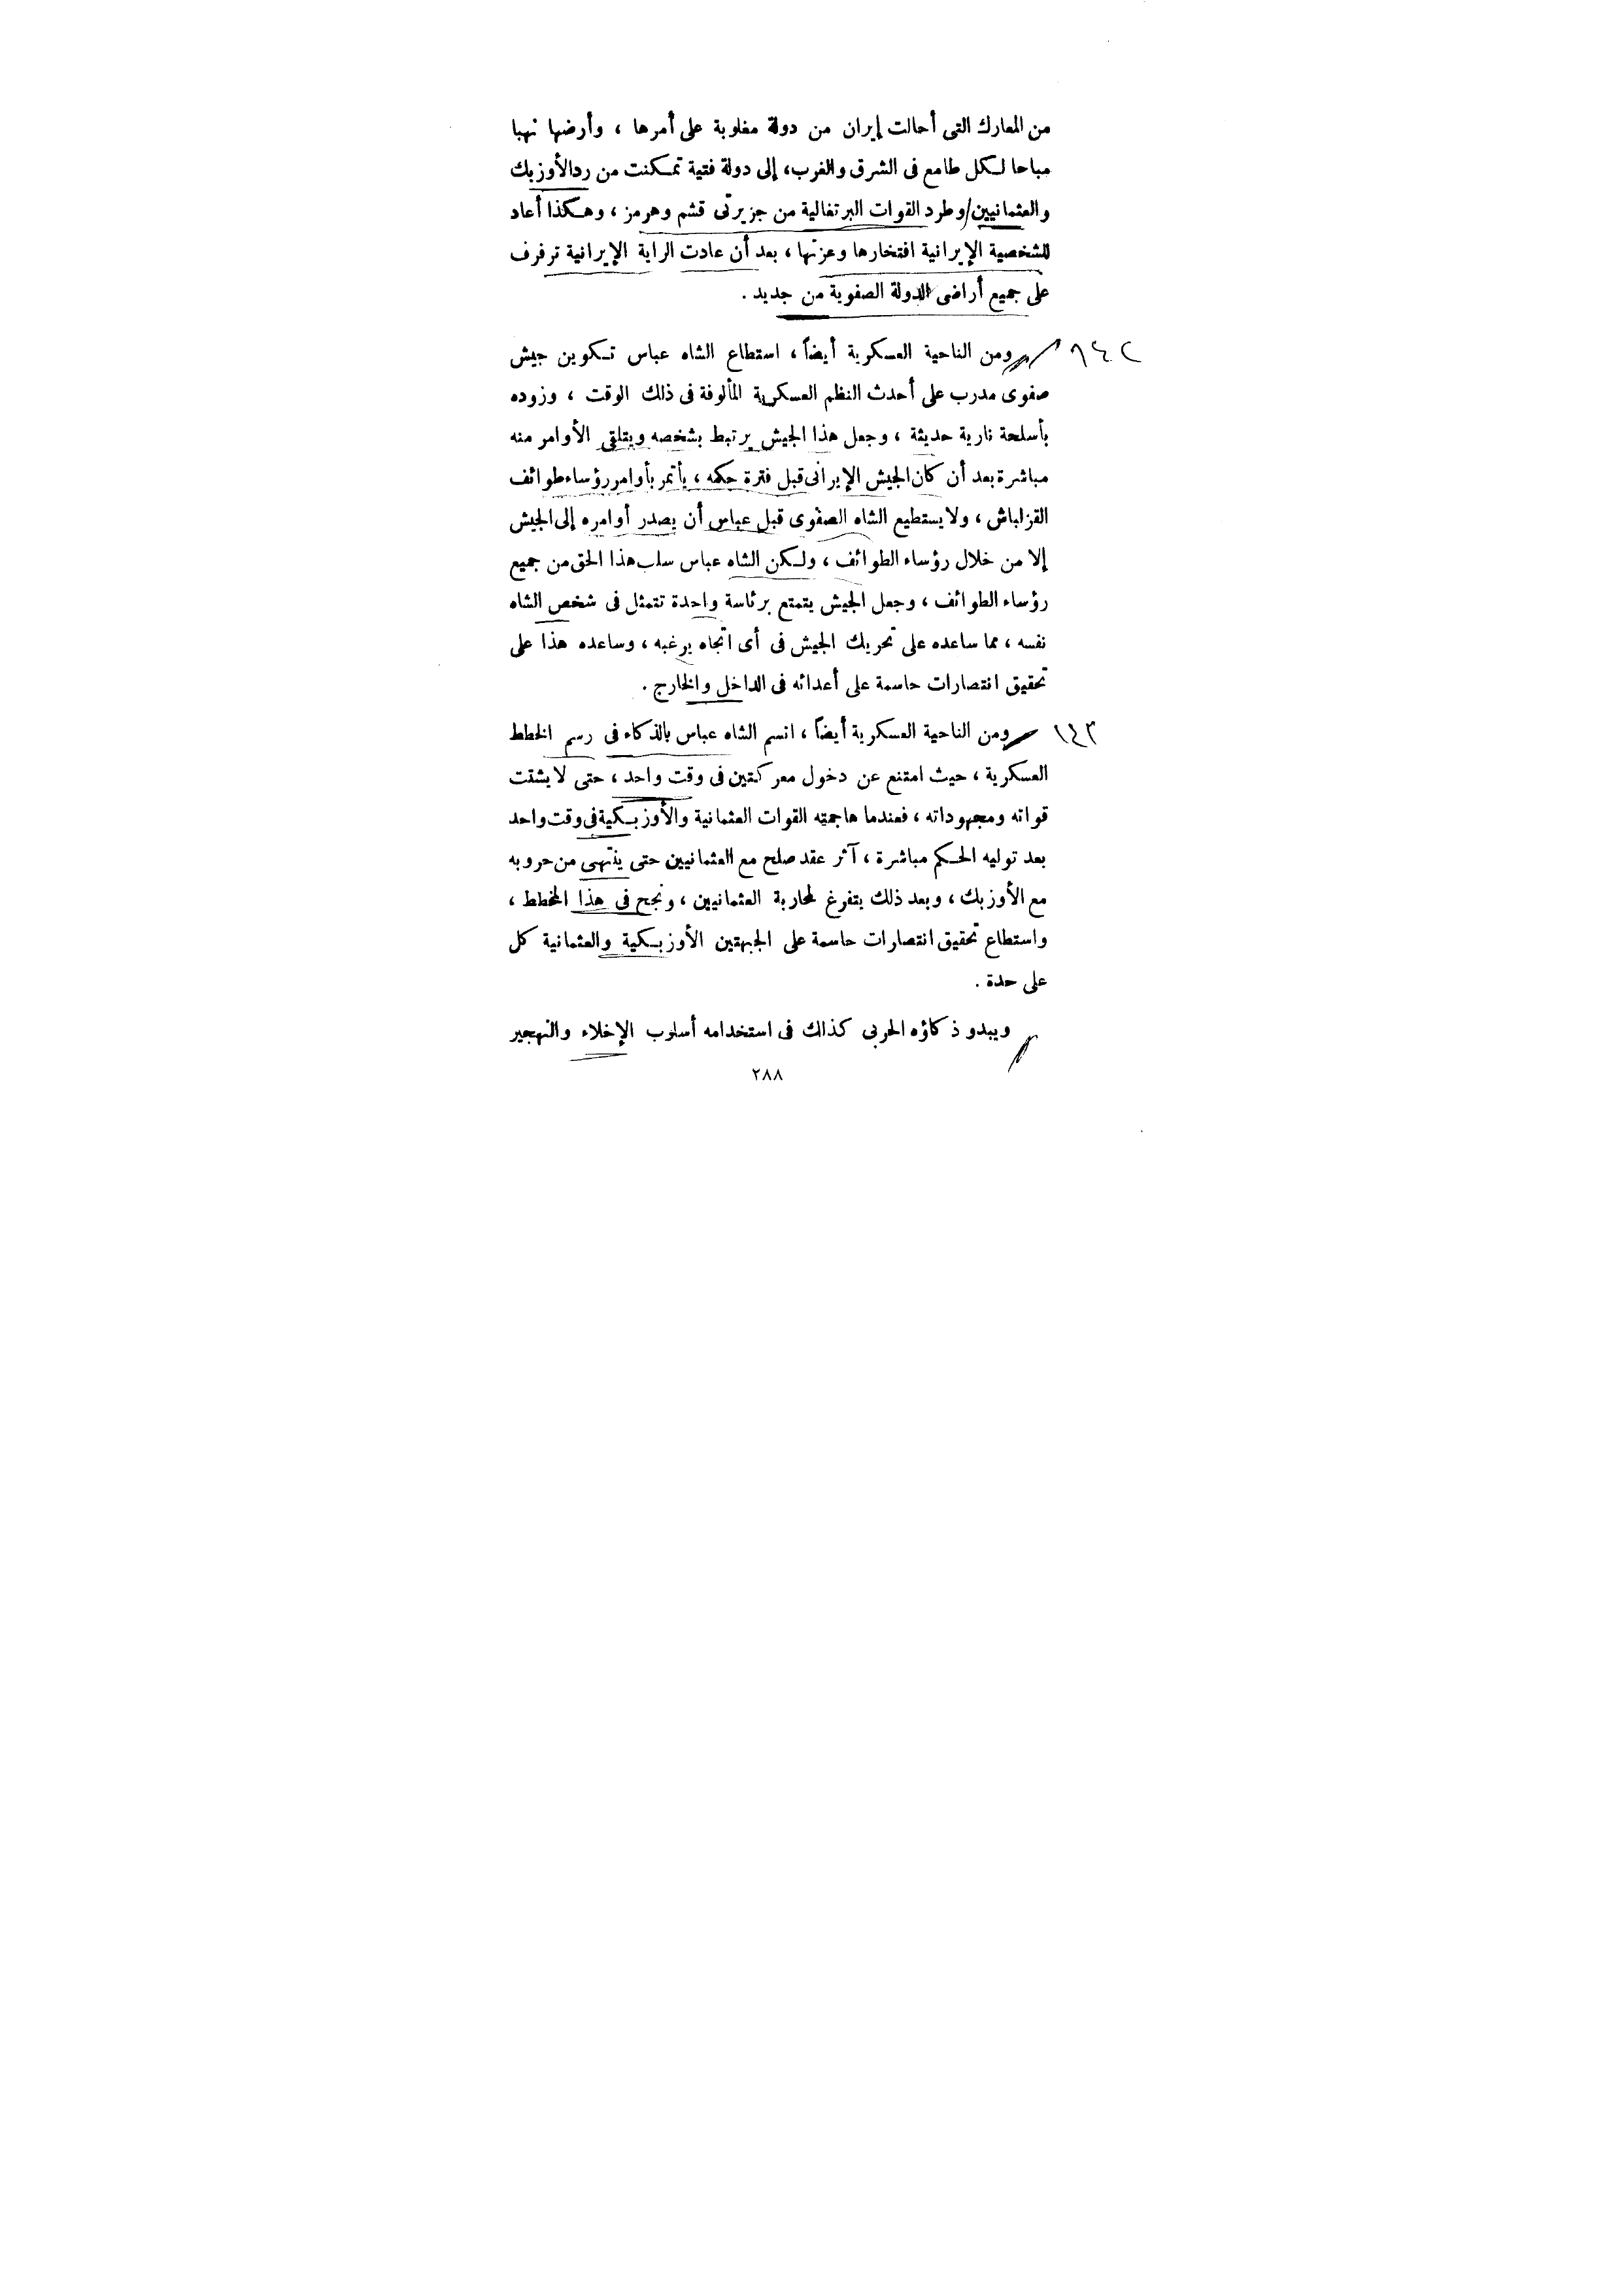 من المعارك التى أحالت إيران من دولة مغلوبة على أمرها ، وأرضها نهبا
مباحا لكل طامع فى الشرق والغرب، إلى دولة فتية تمكنت من رد الأوزبك
والعثمانيين/وطرد القوات البرتغالية من جزيرتى قشم وهرمز ، وهكذا أعاد
للشخصية الإيرانية افتخارها وعزتها ، بعد أن عادت الراية الإيرانية ترفرف
على جميع أراضى الدولة الصفوية من جديد .
ومن الناحية العسكرية أيضاً ، استطاع الشاه عباس تكوين جيش
صفوى مدرب على أحدث النظم العسكرية المألوفة فى ذلك الوقت ، وزوده
بأسلحة نارية حديثة ، وجعل هذا الجيش يرتبط بشخصه ويتلقى الأوامر منه
مباشرة بعد أن كان الجيش الإيرانى قبل فترة حكمه ، يأتمر بأوامر رؤساء طوائف
القزلباش ، ولا يستطيع الشاه الصفوى قبل عباس أن يصدر أوامره إلى الجيش
إلا من خلال رؤساء الطوائف ، ولكن الشاه عباس سلب هذا الحق من جميع
رؤساء الطوائف ، وجعل الجيش يتمتع برئاسة واحدة تتمثل فى شخص الشاه
نفسه ، مما ساعده على تحريك الجيش فى أى اتجاه يرغبه ، وساعده هذا على
تحقيق انتصارات حاسمة على أعدائه فى الداخل والخارج .
١٤٣ ومن الناحية العسكرية أيضاً ، اتسم الشاه عباس بالذكاء فى رسم الخطط
العسكرية ، حيث امتنع عن دخول معركتين فى وقت واحد ، حتى لا يشتت
قواته ومجهوداته ، فعندما هاجمته القوات العثمانية والأوزبكية فى وقت واحد
بعد توليه الحكم مباشرة ، آثر عقد صلح مع العثمانيين حتى ينتهى من حروبه
مع الأوزبك ، وبعد ذلك يتفرغ لمحاربة العثمانيين ، ونجح فى هذا المخطط ،
واستطاع تحقيق انتصارات حاسمة على الجبهتين الأوزبكية والعثمانية كل
على حدة .
ويبدو ذكاؤه الحربى كذلك فى استخدامه أسلوب الإخلاء والتهجير
٢٨٨